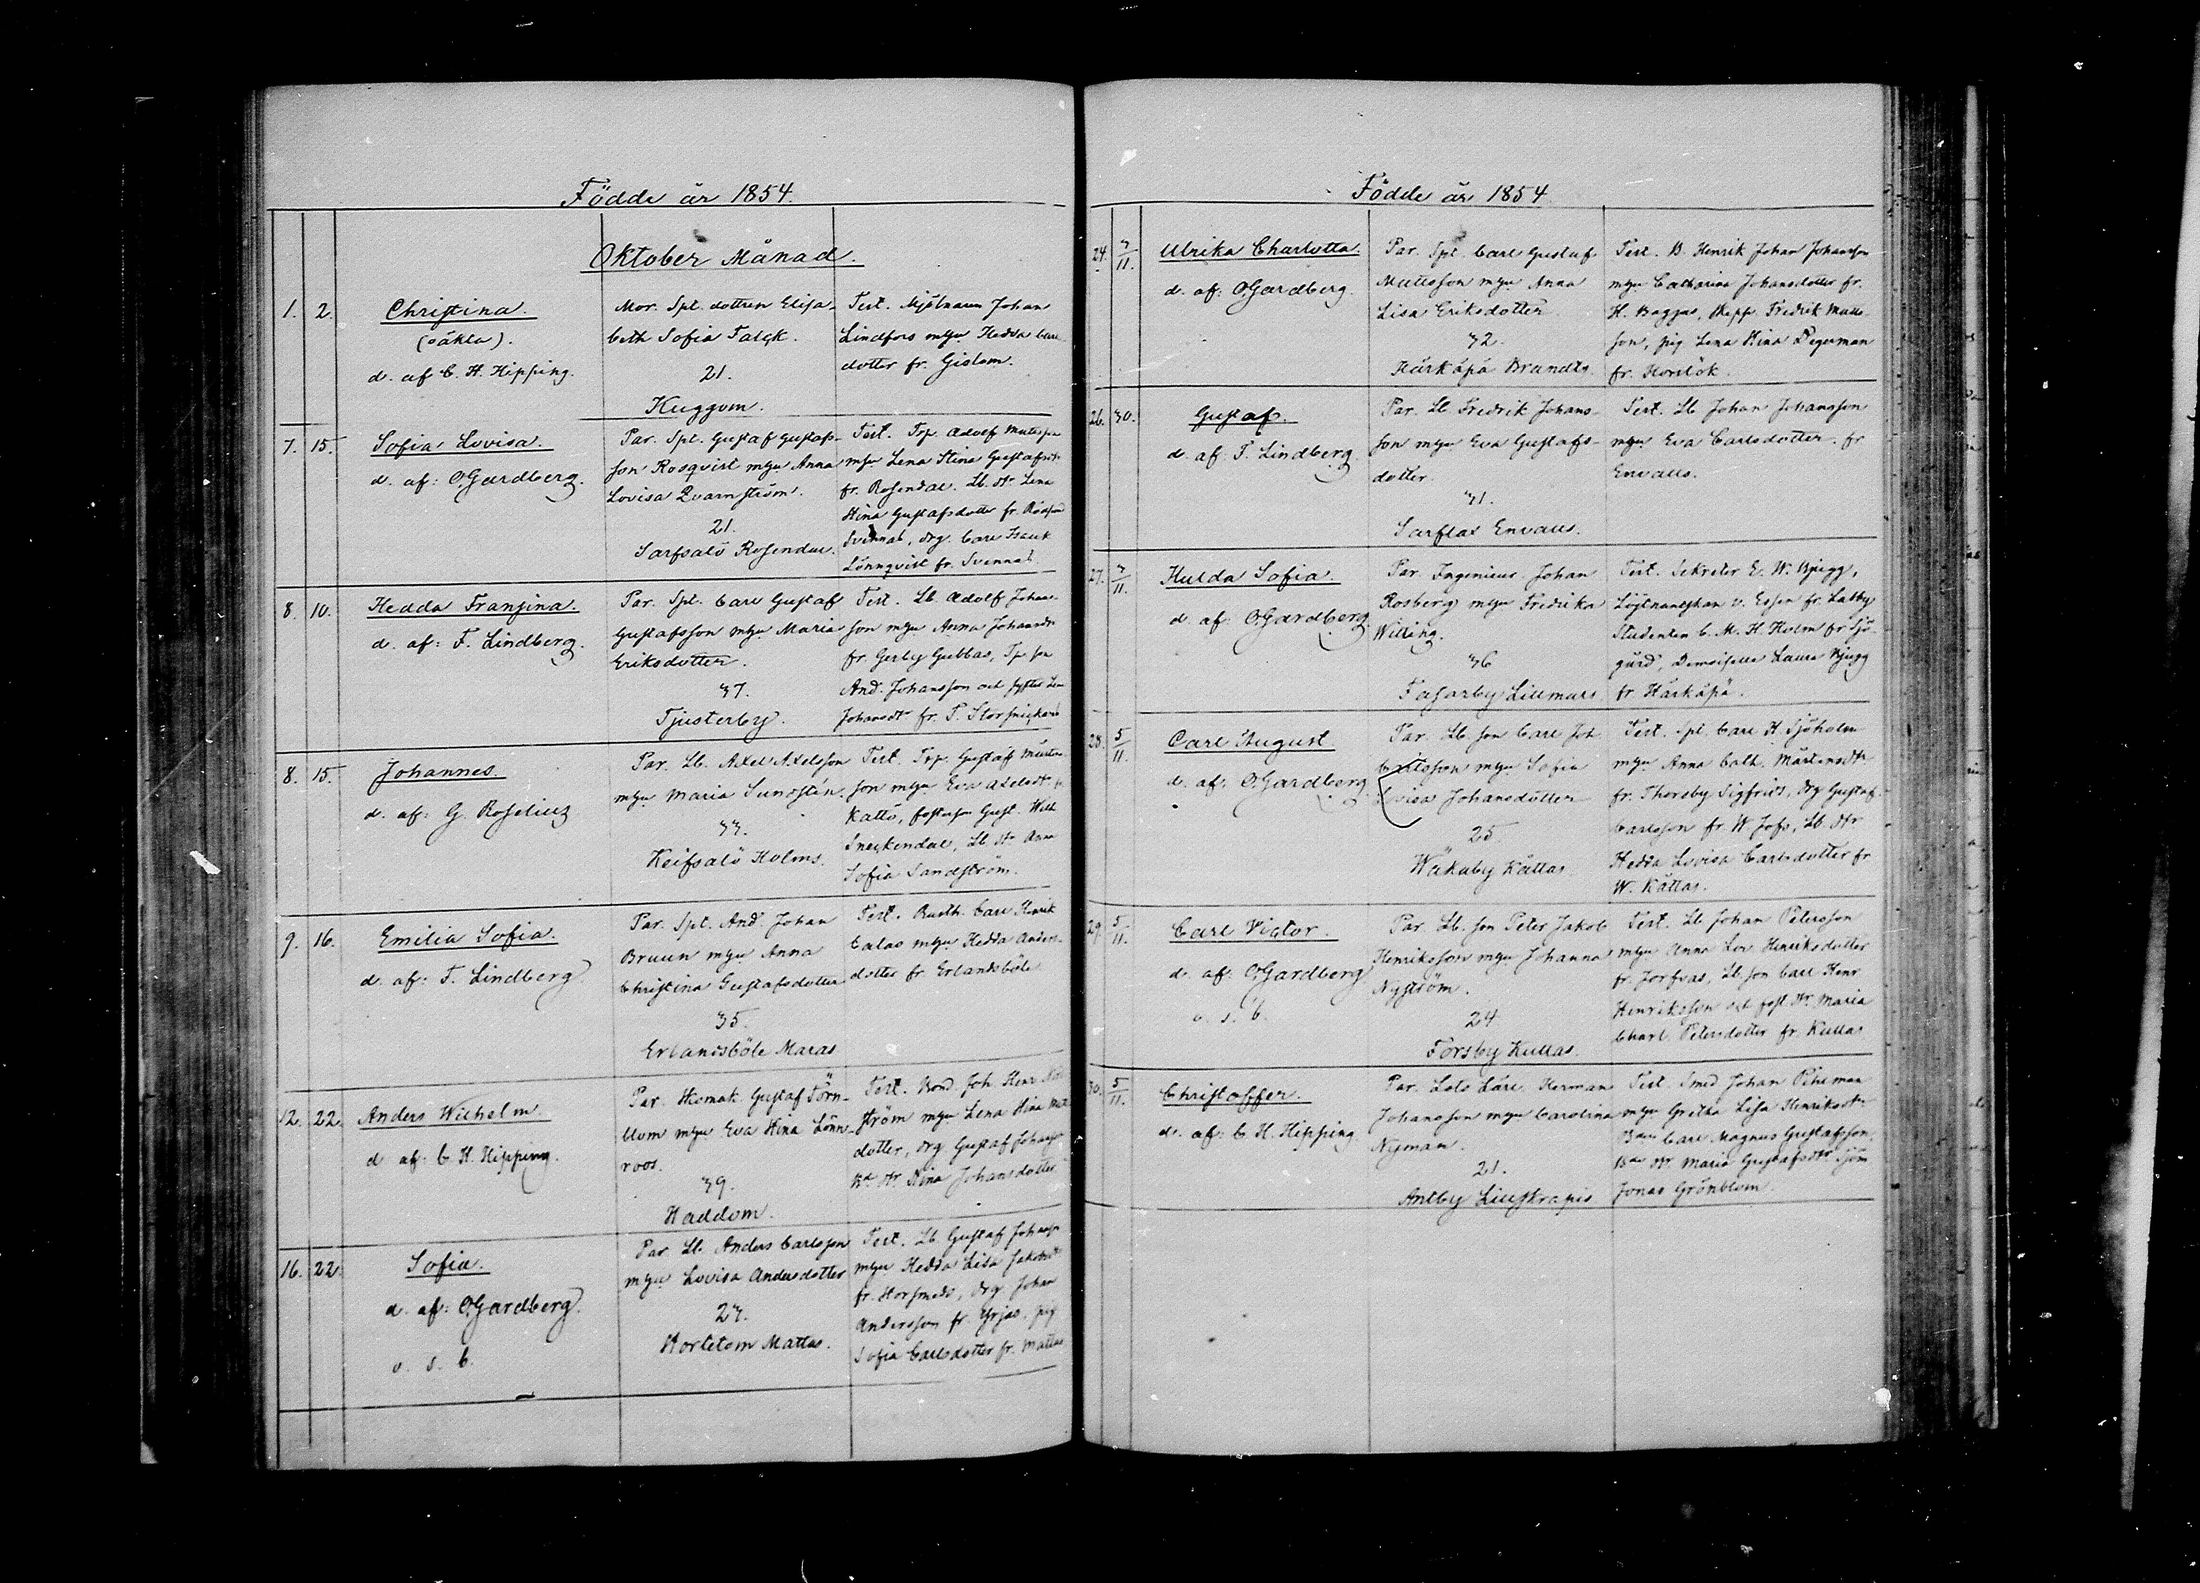 Födde år 1854.
Oktober Månad.
1. 2. Christina.
(oäkta).
d. af C. H. Hipping.
Mor. Spt. dottren Elisa-
beth Sofia Falck.
21.
Kuggom.
Test. Mjölnaren Johan
Lindfors m hu Hedda Carls
dotter fr. Gislom.
7. 15. Sofia Lovisa.
d. af: O. Gardberg.
Par. Spt. Gustaf Gustafs-
son Rosqvist m hu Anna
Lovisa Qvarnström.
21.
Sarfsalö Rosendal.
Test. Trp. Adolf Mattsson
m hu Lena Stina Gustafsdr
fr. Rosendal. Lb. dtr Lena
Stina Gustafsdotter fr.
Svennas, drg. Carl Isaak
Lönnqvist fr. Svennas
8. 10. Hedda Fransina.
d. af: F. Lindberg.
Par. Spt. Carl Gustaf
Gustafsson m hu Maria
Eriksdotter.
37.
Tjusterby.
Test. Lb. Adolf Johans-
son m hu Anna Johansdr
fr. Gerby Gubbas,
And. Johansson och syster Lena
Johansdr fr. T. Storsnickars
8. 15. Johannes.
d. af: G. Roselius
Par. Lb. Axel Axelsson
m hu Maria Sundstén
33.
Keifsalö Holms.
Test. Trp. Gustaff Mårtens
son m hu Eva Axelsdr fr
Kattö, fosterson Gust. Wilh
Sneckendal, Lb. dtr Anna
Sofia Sandström.
9. 16. Emilia Sofia.
d. af: F. Lindberg
Par. Spt. And. Johan
Bruun m hu Anna
Christina Gustafsdotter
35.
Erlandsböle Maras
Test. Carl Henrik
Calas m hu Hedda Anders-
dotter fr Erlandsböle
12. 22. Anders Wilhelm.
d. af: C. H. Hipping.
Par. Skomak. Gustaf Törn-
blom m hu Eva Stina Lönn-
roos.
39.
Haddom.
Test. Bond. Joh. Henr.
ström m hu Lena Stina
dotter, drg Gustaf Johansson
Bde dtr Stina Johansdotter
16. 22. Sofia.
d. af: O. Gardberg.
v. s. b.
Par. Lb. Anders Carlsson
m hu Lovisa Andersdotter
23.
Wortetom Mattas.
Test. Lb Gustaf Johansson
m hu Hedda Lisa Jakobsdr
fr. Horsmeds, drg Johan
Andersson fr Yrjas, pig
Sofia Carlsdotter fr. Mattas
Födde år 1854
24. 3/11. Ulrika Charlotta.
d. af: O. Gardberg.
Par. Spt. Carl Gustaf
Mattsson m hu Anna
Lisa Eriksdotter
32.
Härkäpä Brandts.
Test. B. Henrik Johan Johansson
m hu Catharina Johansdotter fr.
H. Baggas, Skepp. Fredrik Matts-
son, pig Lena Stina Degerman
fr. Horslök.
26. 30. Gustaf.
d. af: F. Lindberg.
Par. Lb Fredrik Johans-
son m hu Eva Gustafs-
dotter.
31.
Sarflax Envalls.
Test. Lb Johan Johansson
m hu Eva Carlsdotter fr
Envalls.
27. 3/11. Hulda Sofia.
d. af: O. Gardberg.
Par. Ingenieur Johan
Rosberg m hu Fredrika
Willing.
36
Fasarby Lillmars
Test. Sekreter E. W. Bjugg,
Löjtnanskan v. Essen fr. Labby
Studenten C. M. H. Holm fr Sjö-
gård, Demoiselle Laura Bjugg
fr Härkäpä.
28. 5/11. Carl August
d. af: O. Gardberg.
Par. Lb son Carl Joh
Carlsson m hu Sofia
Lovisa Johansdotter
25
Wåtskby Kättas
Test. Spt. Carl H Sjöholm
m hu Anna Cath. Mårtensdtr
fr. Thorsby Sigfrids, drg Gustaf
Carlsson fr W. Jofs, Lb. dtr
Hedda Lovisa Carlsdotter fr
W. Kättas.
29. 5/11. Carl Victor.
d. af: O. Gardberg
v. s. b.
Par. Lb. son Peter Jakob
Henriksson m hu Johanna
Nyström.
24
Forsby Kullas
Test. Lb Johan Petersson
m hu Anna Lov. Henriksdotter
fr. Jorfvas, Lb. son Carl Henr.
Henriksson och fost. dtr Maria
Charl. Petersdotter fr. Kullas
30. 5/11. Christoffer.
d. af: C. H. Hipping.
Par. Lots Lärl. Herman
Johansson m hu Carolina
Nyman.
21.
Antby Liufkrapis
Test. Smed Johan Pihlman
m hu Gretha Lisa Henriksdtr
Bson Carl Magnus Gustafsson,
Bde dtr Maria Gustafsdtr sjöm
Jonas Grönblom.